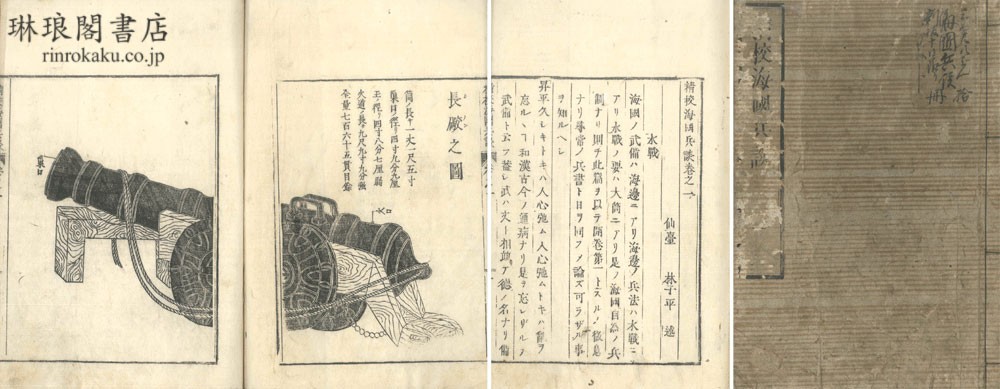 琳琅閣書店
rinrokaku.co.jp
精校海國兵談卷之一
仙臺 林子平 述
水戰
海國ノ武備ハ海邊ニアリ海邊ノ兵法ハ水戰ニ
アリ水戰ノ要ハ大筒ニアリ是ノ海國自然ノ兵
制ナリ則チ此篇ヲ以ラ開卷第一トスルノ微意
ナリ尋常ノ兵書ト日ヲ同フノ論ズ可ラザル事
ヲ知ルヘシ
昇平久シキトキハ人心弛ム人心弛ムトキハ亂ヲ
忘ルヽ和漢古今ノ通病ナリ是ヲ忘レザルヲ
武備ト云フ蓋シ武ハ文ト相 德ノ名ナリ備
長礮之圖
筒ノ長サ一丈一尺五寸
巢口ノ徑リ四寸九分九厘
玉ノ徑リ四寸八分七厘弱
火通ノ長九尺九寸九分強
全量七百六十五貫目餘
火口
巢口
校海國兵談